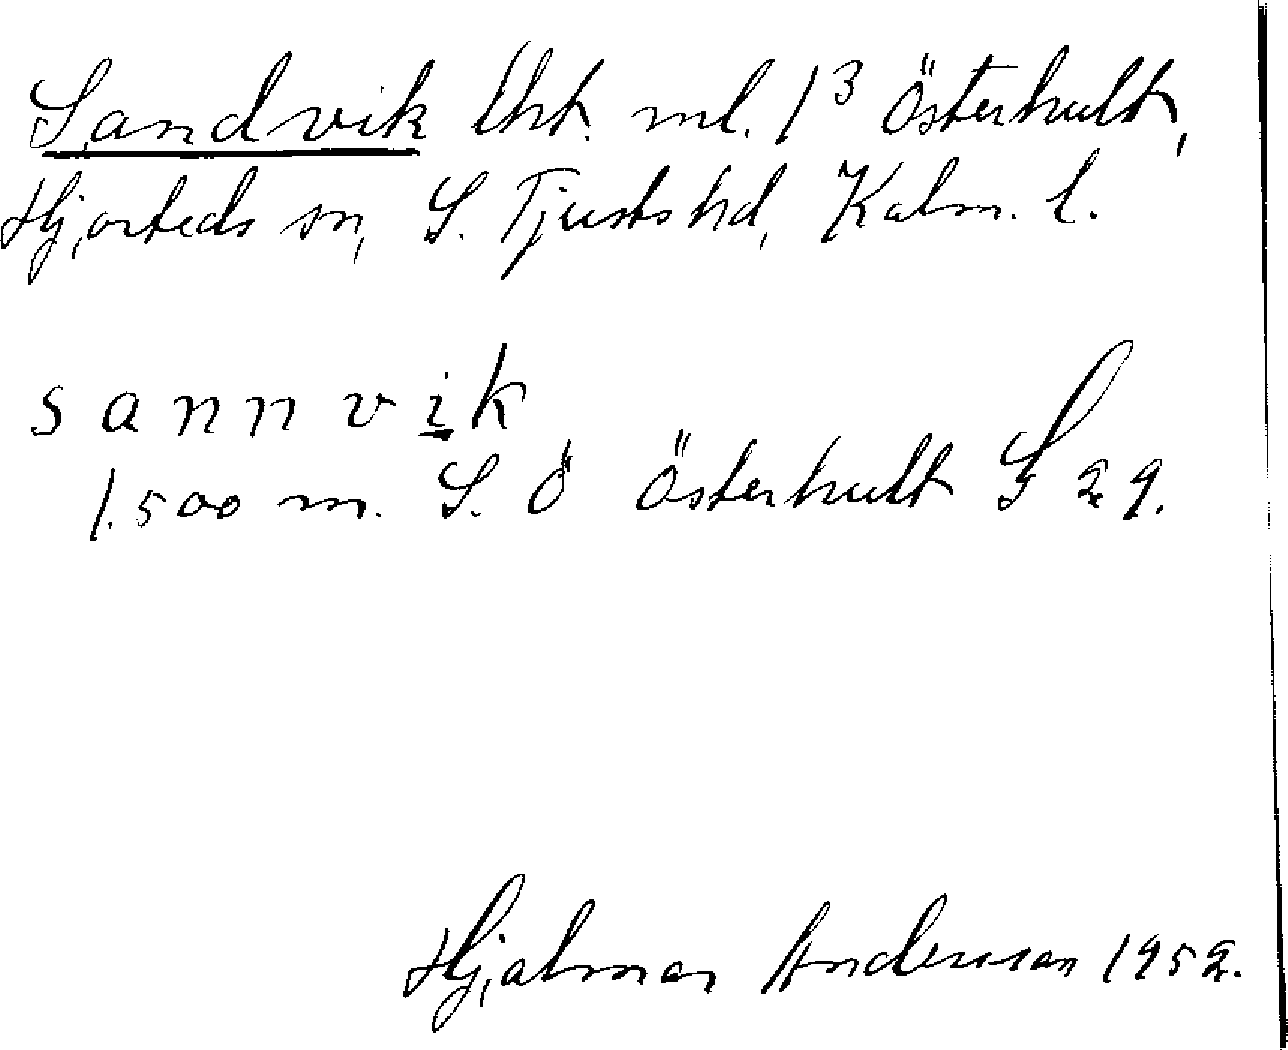 Sandvik lht. ml. 1³ Österhult,
Hjorteds sn, S. Tjusts hd, Kalm. l.
sannvik
1.500 m. S. Ö Österhult S 29.
Hjalmar Andersson 1952.